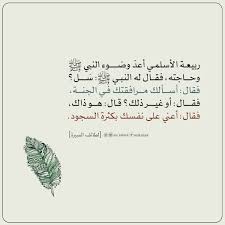 ربيعة الأسلمي أعدّ وضـــوء النبي ﷺ
وحـاجته، فقـال له النبي ﷺ: سَـل؟
فقـال: أسـألك مرافقتـك في الجنـة،
فقـال: أو غيـر ذلك؟ قال: هـو ذاك،
فقـال: أعنّي على نفسـك بكثـرة السجود.